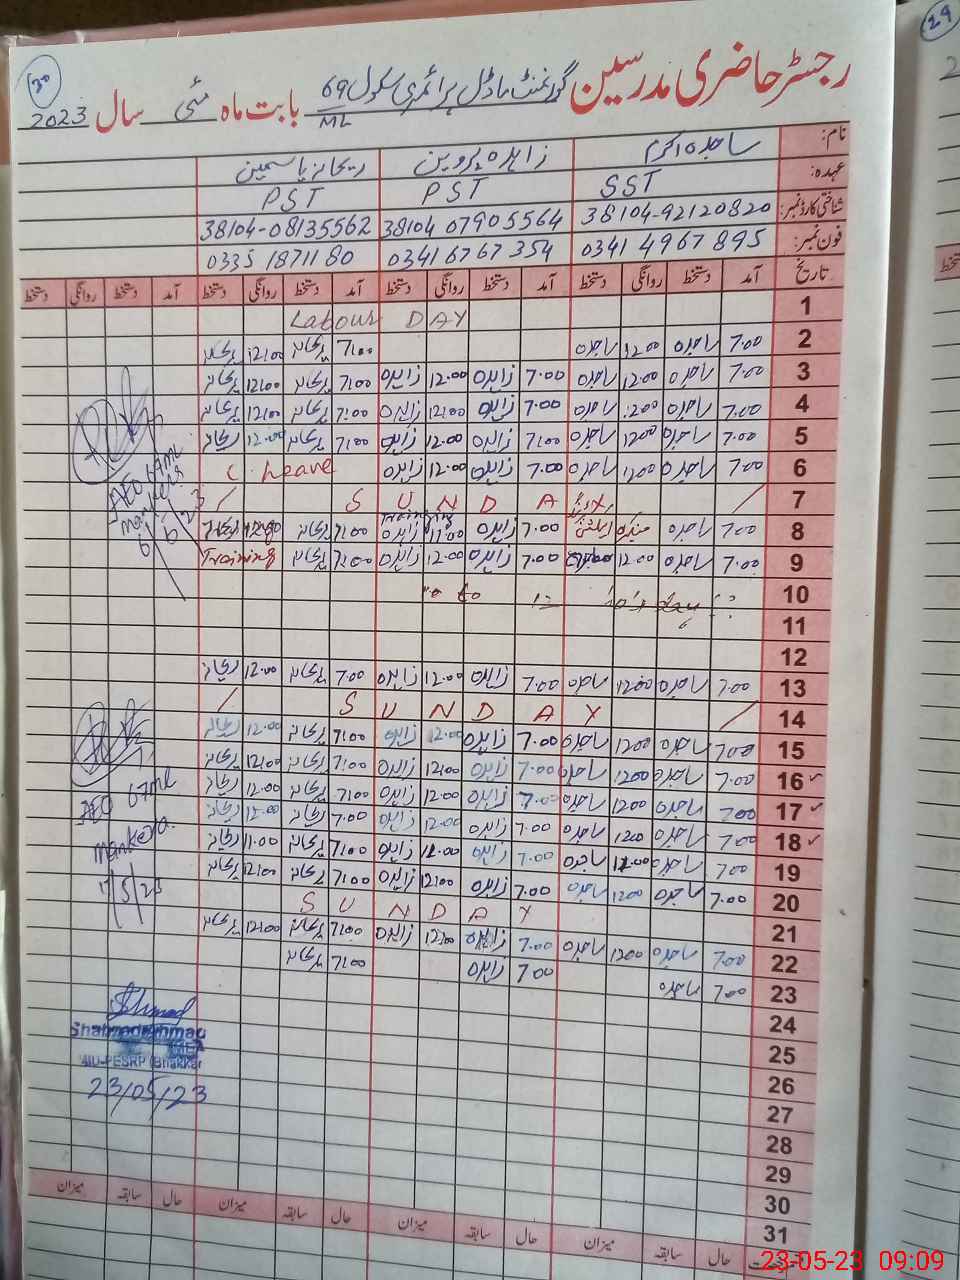 30
29
رجسٹر حاضری مدرسین گورنمنٹ ماڈل پرائمری سکول 69 ML بابت ماہ مئی سال 2023
نام: ساجدہ اکرم زاہدہ پروین ریحانہ یاسمین
عہدہ: SST PST PST
شناختی کارڈ نمبر: 38104-92120820 38104 07905564 38104-08135562
فون نمبر: 0341 4967895 0341 6767354 0335 1871180
تاریخ آمد دستخط روانگی دستخط آمد دستخط روانگی دستخط آمد دستخط روانگی دستخط آمد دستخط روانگی دستخط
1 Labour DAY
2 7.00 ساجدہ 12.00 ساجدہ 7:00 ریحانہ 12:00 ریحانہ
3 7.00 ساجدہ 12.00 ساجدہ 7.00 زاہدہ 12.00 زاہدہ 7:00 ریحانہ 12:00 ریحانہ
4 7.00 ساجدہ 12.00 ساجدہ 7.00 زاہدہ 12:00 زاہدہ 7:00 ریحانہ 12:00 ریحانہ
5 7.00 ساجدہ 12.00 ساجدہ 7:00 زاہدہ 12.00 زاہدہ 7:00 ریحانہ 12.00 ریحانہ
6 7.00 ساجدہ 12.00 ساجدہ 7.00 زاہدہ 12.00 زاہدہ C. Leave
7 SUNDAY
8 7.00 ساجدہ 7.00 زاہدہ 11:00 زاہدہ Training 7:00 ریحانہ ریحانہ
9 7.00 ساجدہ 12.00 7.00 زاہدہ 12:00 زاہدہ 7:00 ریحانہ Training
10 to 12
11
12
13 7.00 ساجدہ 12.00 ساجدہ 7.00 زاہدہ 12.00 زاہدہ 7.00 ریحانہ 12.00 ریحانہ
14 SUNDAY
15 7.00 ساجدہ 12.00 ساجدہ 7.00 زاہدہ 12.00 زاہدہ 7:00 ریحانہ 12.00 ریحانہ
16 7.00 ساجدہ 12.00 ساجدہ 7.00 زاہدہ 12:00 زاہدہ 7:00 ریحانہ 12:00 ریحانہ
17 7.00 ساجدہ 12.00 ساجدہ 7.00 زاہدہ 12.00 زاہدہ 7:00 ریحانہ 12.00 ریحانہ
18 7.00 ساجدہ 12.00 ساجدہ 7.00 زاہدہ 12.00 زاہدہ 7.00 ریحانہ 12.00 ریحانہ
19 7.00 ساجدہ 12.00 ساجدہ 7.00 زاہدہ 12.00 زاہدہ 7:00 ریحانہ 11.00 ریحانہ
20 7.00 ساجدہ 12.00 ساجدہ 7.00 زاہدہ 12:00 زاہدہ 7:00 ریحانہ 12:00 ریحانہ
21 SUNDAY
22 7.00 ساجدہ 12.00 ساجدہ 7.00 زاہدہ 12:00 زاہدہ 7:00 ریحانہ 12:00 ریحانہ
23 7.00 ساجدہ 7.00 زاہدہ 7:00 ریحانہ
24
25
26
27
28
29
30
31
حال سابقہ میزان حال سابقہ میزان حال سابقہ میزان حال سابقہ میزان
AEO 67ML
Mankera
6/5/23
AEO 67ML
Mankera.
17/5/23
MEA
PESRP (Bhakkar
23/05/23
23-05-23 09:09